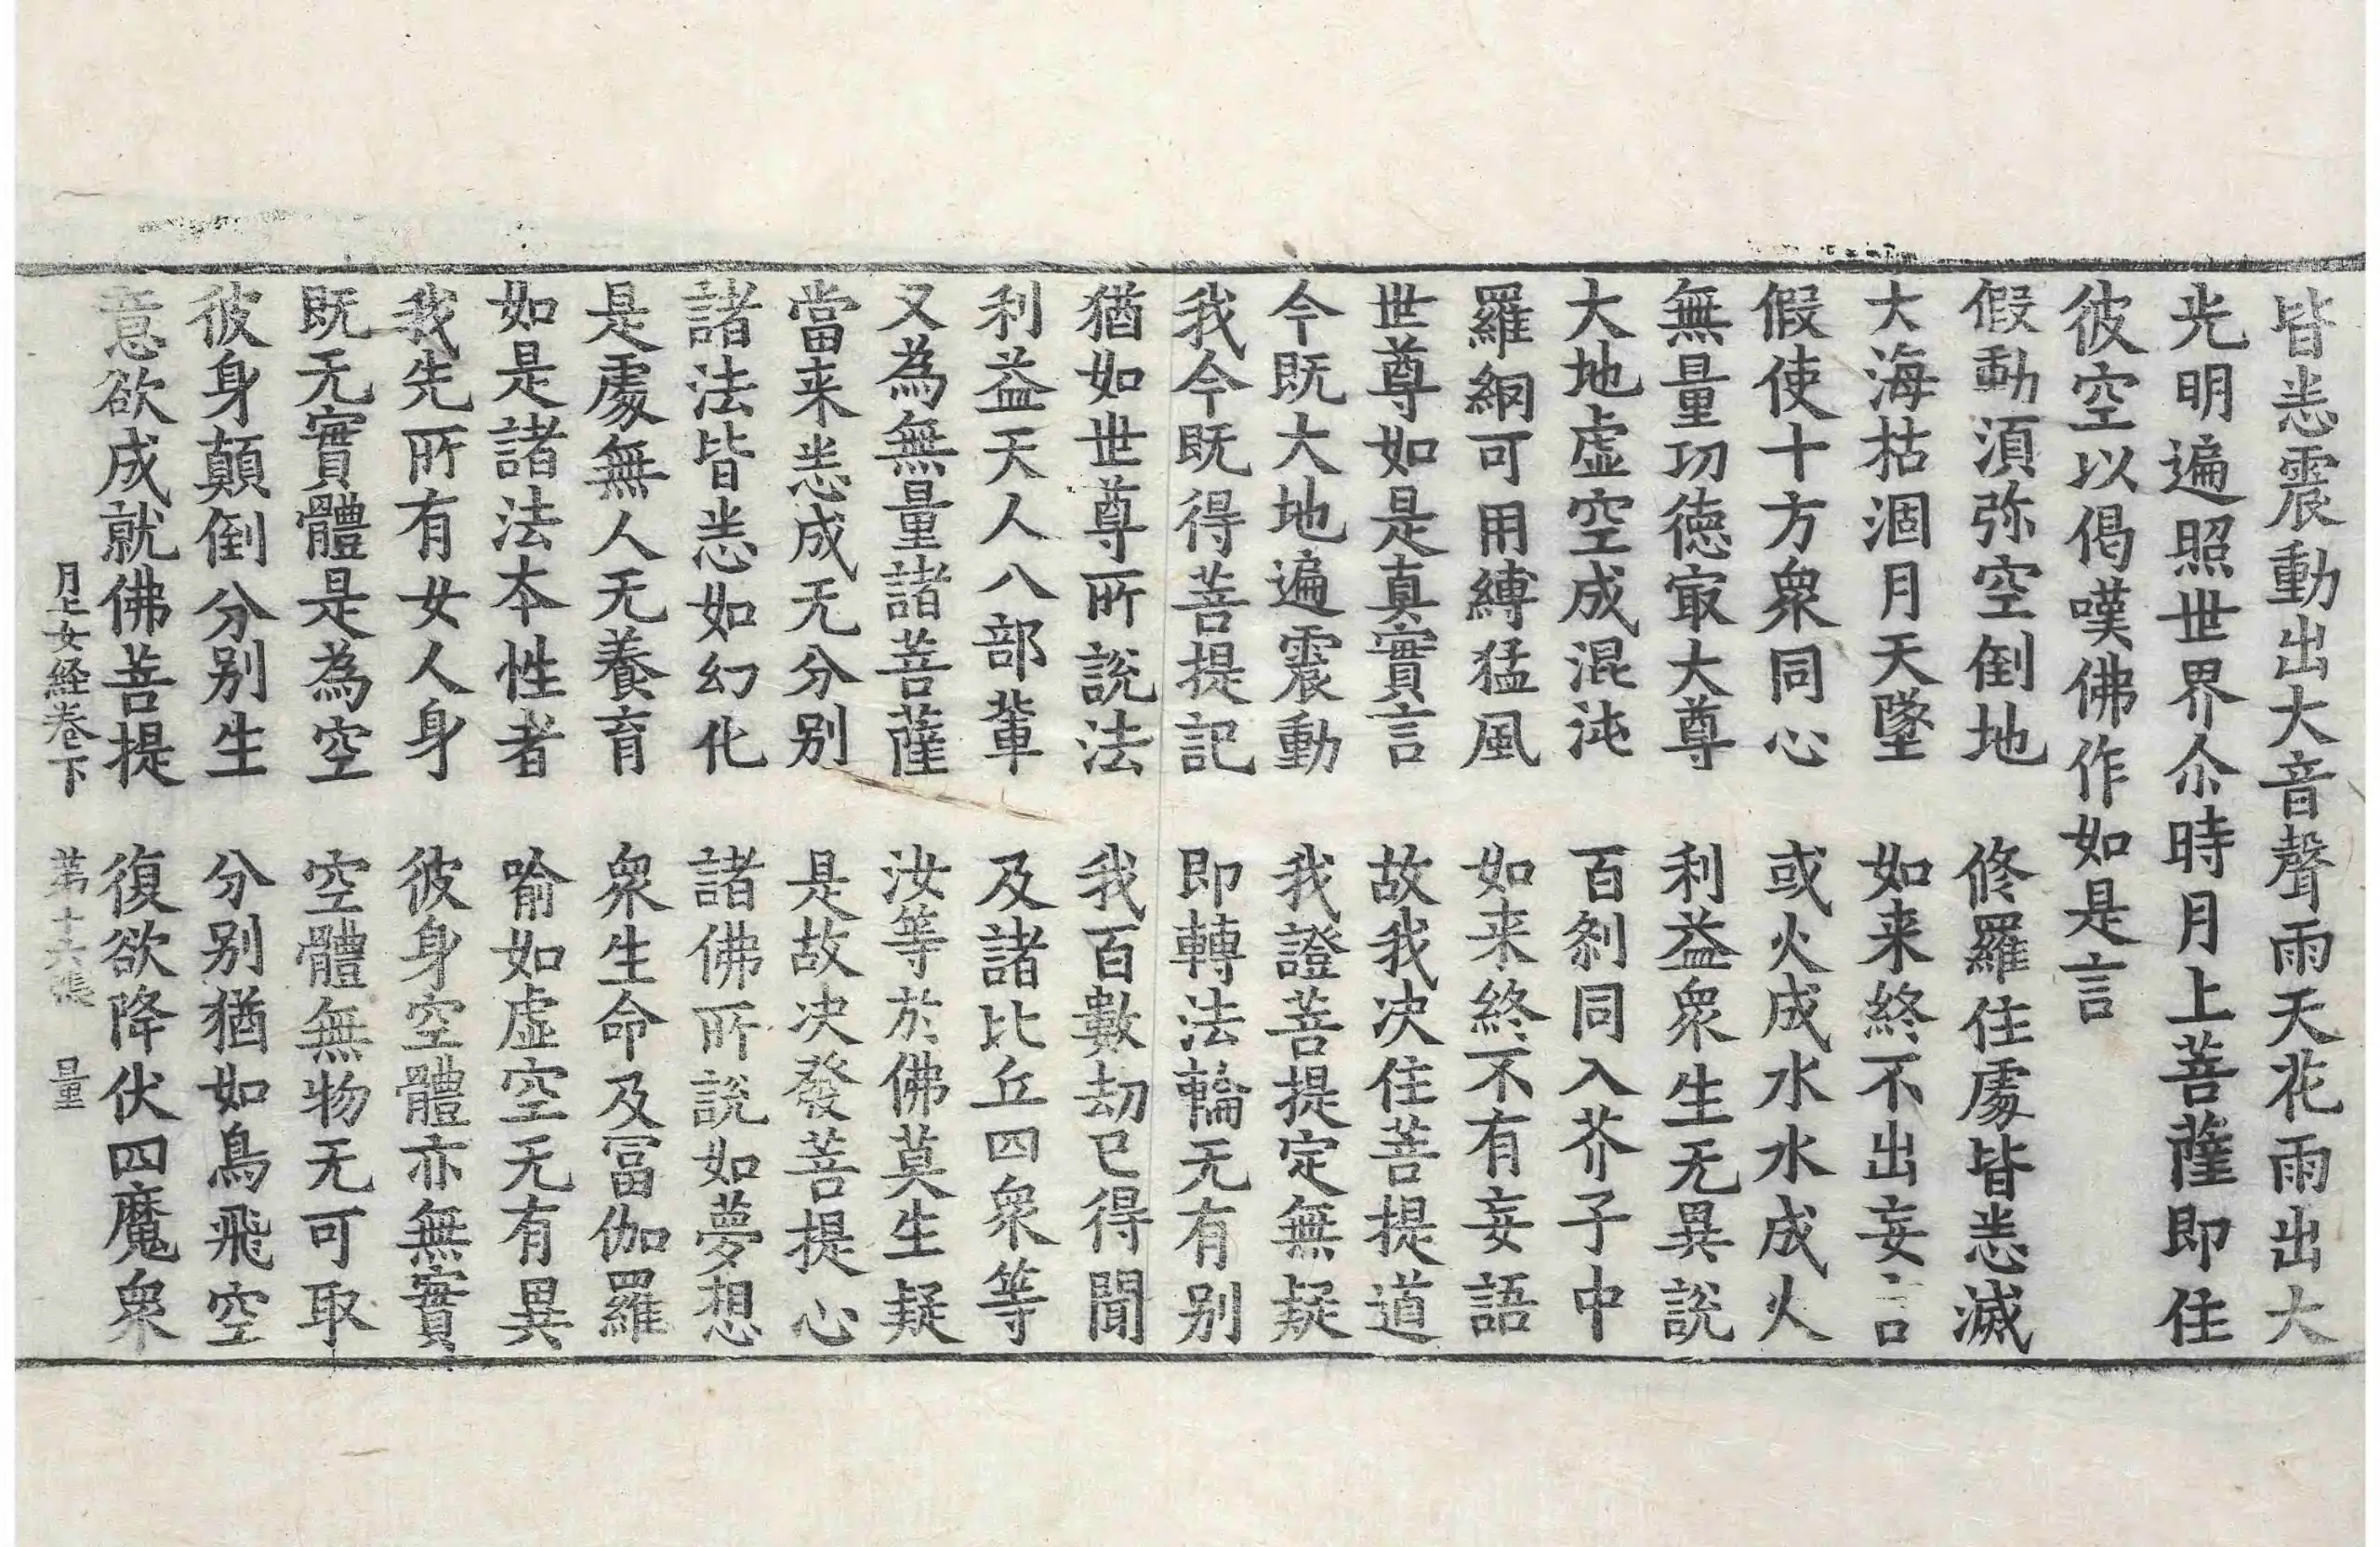 皆悉震動出大音聲雨天花雨出大
光明遍照世界尒時月上菩薩即住
彼空以偈嘆佛作如是言
假動湏弥空倒地　修羅住處皆悉滅
大海枯涸月天墜　如来終不出妄言
假使十方衆同心　或火成水水成火
無量功徳㝡大尊　利益衆生无異說
大地虚空成混沌　百剎同入芥子中
羅網可用縛猛風　如来終不有妄語
世尊如是真實言　故我决住菩提道
今既大地遍震動　我證菩提定無疑
我今既得菩提記　即轉法輪无有别
猶如世尊所說法　我百數劫已得聞
利益天人八部輩　及諸比丘四衆等
又為無量諸菩薩　汝等於佛莫生疑
當来悉成无分别　是故决發菩提心
諸法皆悉如幻化　諸佛所說如夢想
是處無人无養育　衆生命及冨伽羅
如是諸法夲性者　喻如虚空无有異
我先所有女人身　彼身空體亦無實
既无實體是為空　空體無物无可取
彼身顛倒分别生　分别猶如鳥飛空
意欲成就佛菩提　復欲降伏四魔衆
月上女経卷下　苐十六張　量